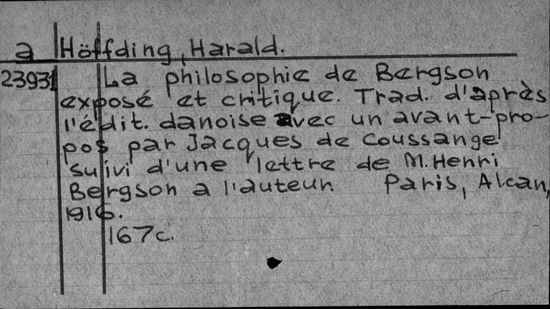 a Höffding, Harald.
23931 La philosophie de Bergson
exposé et critique. Trad. d'après
l'édit. danoise avec un avant-pro-
pos par Jacques de Coussange
suivi d'une lettre de M. Henri
Bergson a l'auteur Paris, Alcan,
1916.
167c.